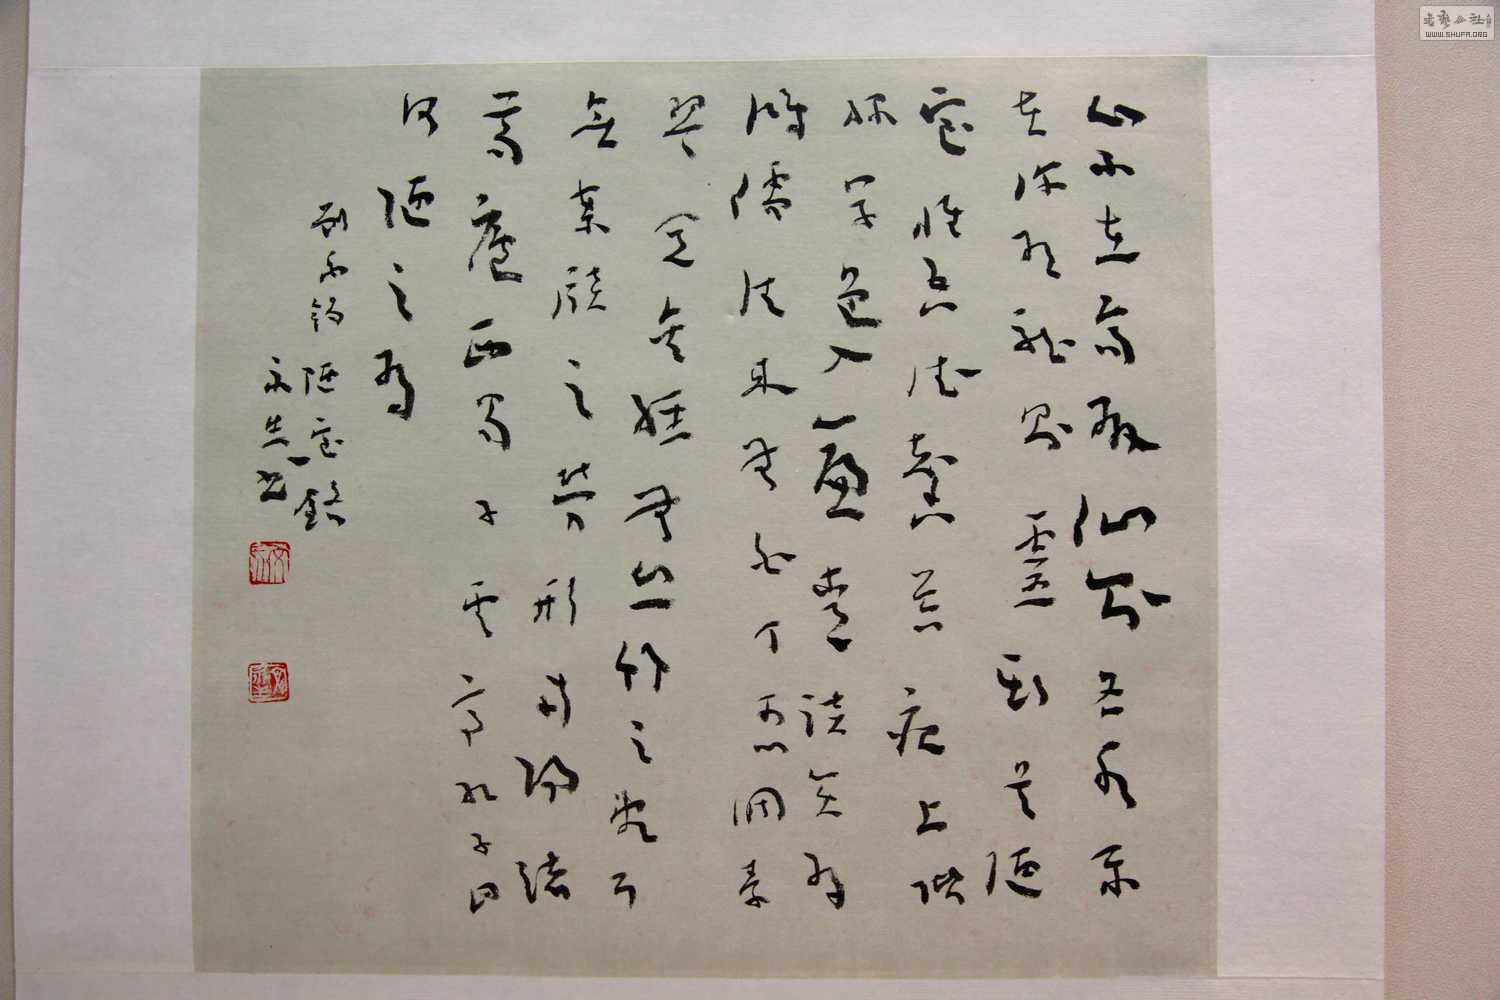 山不在高有仙則名水不
在深有龍則靈斯是陋
室惟吾德馨苔痕上階
綠草色入簾青談笑有
鴻儒往來無白丁可以調素
琴閱金經無絲竹之亂耳
無案牘之勞形南陽諸
葛廬西蜀子雲亭孔子曰
何陋之有
劉禹錫陋室銘
书
书艺公社
WWW.SHUFA.ORG